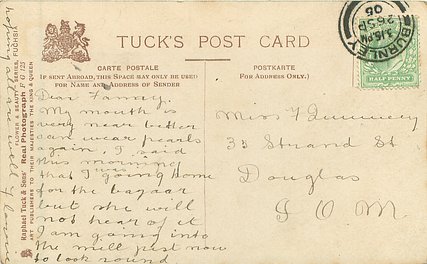 TUCK'S POST CARD
CARTE POSTALE
IF SENT ABROAD, THIS SPACE MAY ONLY BE USED
FOR NAME AND ADDRESS OF SENDER
POSTKARTE
FOR ADDRESS ONLY.)
BURNLEY
3.15 PM
26 SP
05
HALF PENNY
Dear Fanny.
My mouth is
very near better
can wear pearls
again. I said
this morning
that I was going home
for the bazaar
but she will
not hear of it
I am going into
the mill just now
to look round
hoping all are well
Miss F
33 Strand St
Douglas
I O M.
FLOWER & BEAUTY SERIES, FUCHSIA
Raphael Tuck & Sons' Real Photograph F G 125
ART PUBLISHERS TO THEIR MAJESTIES THE KING & QUEEN